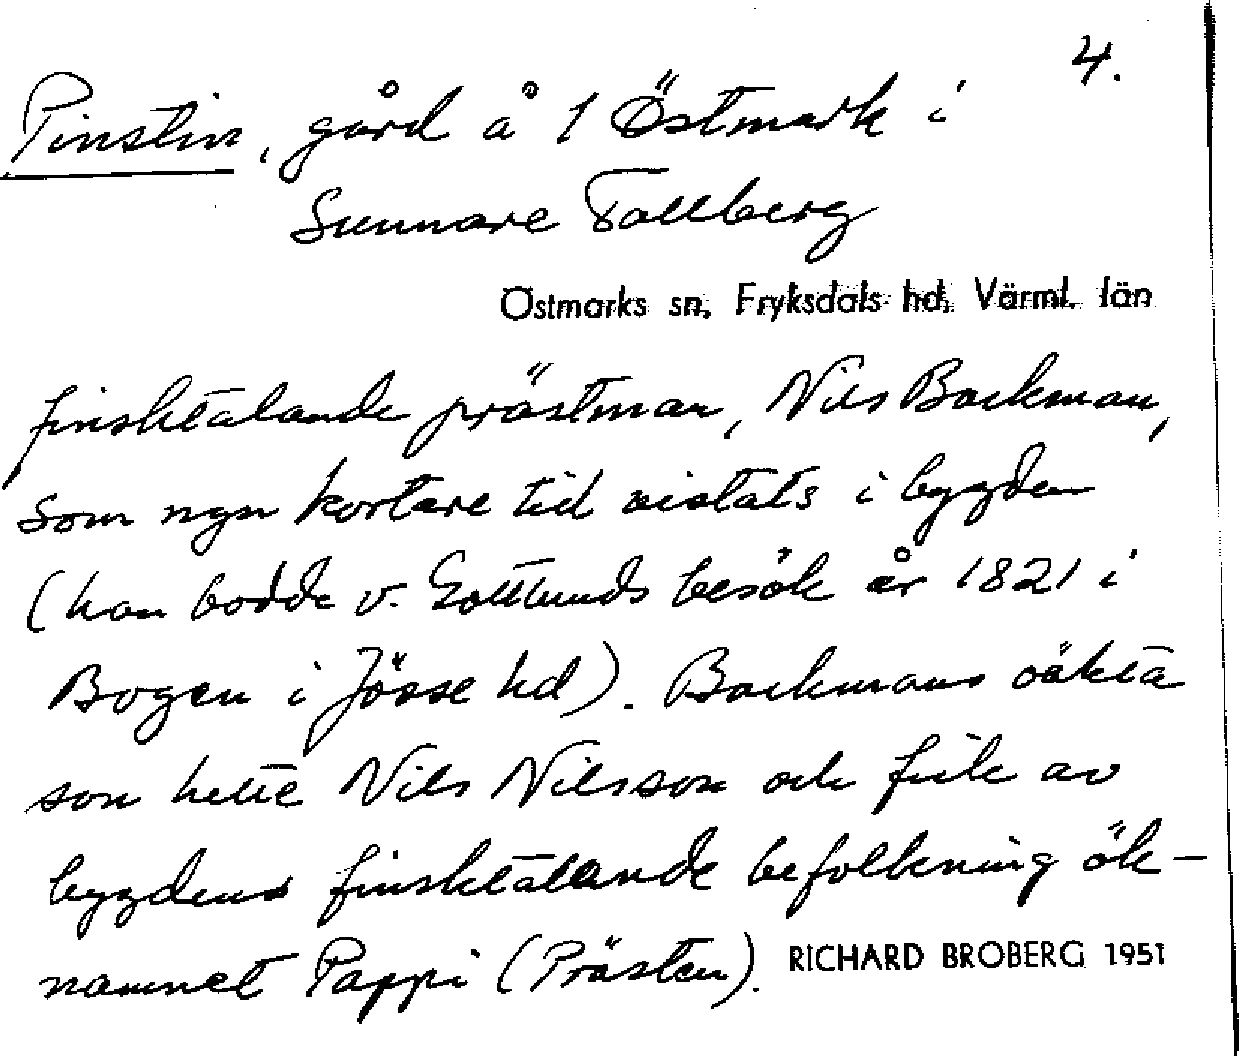 4.
Pinstin, gård å 1 Östmark i
Sunnare Tallberg
Östmarks sn, Fryksdals hd, Värml. län
finsktalande prästman, Nils Backman,
som ngn kortare tid vistats i bygden
(han bodde v. Gottlunds besök år 1821 i
Bogen i Jösse hd). Backmans oäkta
son hette Nils Nilsson och fick av
bygdens finsktalande befolkning ök-
namnet Pappi (Prästen).
RICHARD BROBERG 1951